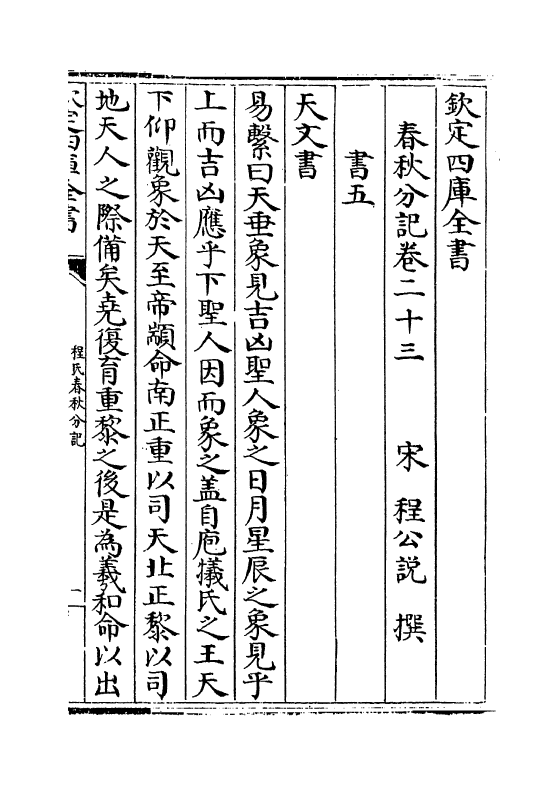 欽定四庫全書
春秋分記卷二十三 宋 程公説 撰
書五
天文書
易繫曰天垂象見吉凶聖人象之日月星辰之象見乎
上而吉凶應乎下聖人因而象之盖自庖犧氏之王天
下仰觀象於天至帝顓命南正重以司天北正黎以司
地天人之際備矣堯復育重黎之後是為羲和命以出
欽定四庫全書
程氏春秋分記
一